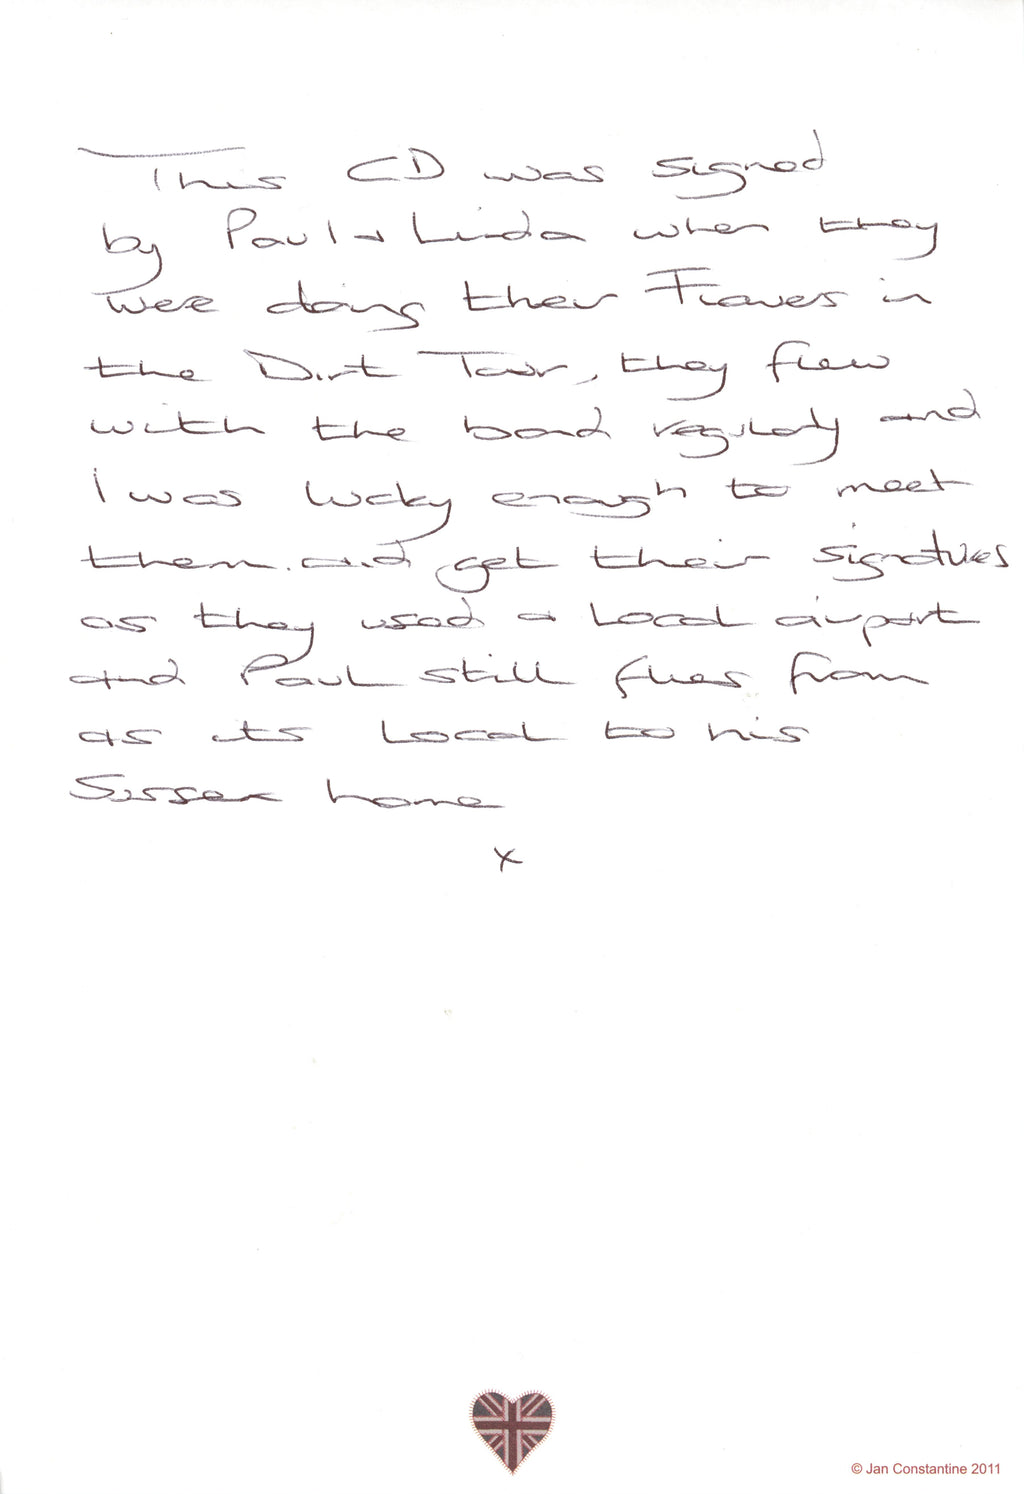 This CD was signed
by Paul + Linda when they
were doing their Flowers in
the Dirt Tour, they flew
with the band regularly and
I was lucky enough to meet
them. and get their signatures
as they used a local airport
and Paul still flies from
as its local to his
Sussex home
x
© Jan Constantine 2011